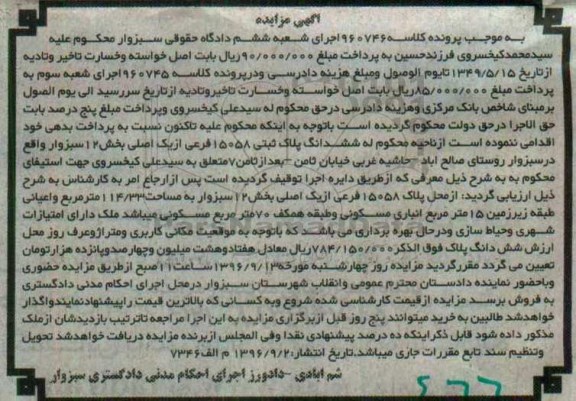 آگهی مزایده
به موجب پرونده کلاسه ۹۶۰۷۴۶ اجرای شعبه ششم دادگاه حقوقی سبزوار محکوم علیه
سیدمحمدکیخسروی فرزندحسین به پرداخت مبلغ ۹۰/۰۰۰/۰۰۰ریال بابت اصل خواسته وخسارت تاخیر وتادیه
ازتاریخ ۱۳۴۹/۵/۱۵ تایوم الوصول ومبلغ هزینه دادرسی ودرپرونده کلاسه ۹۶۰۷۴۵ اجرای شعبه سوم به
پرداخت مبلغ ۸۵/۰۰۰/۰۰۰ریال بابت اصل خواسته وخسارت تاخیروتادیه ازتاریخ سررسید الی یوم الصول
برمبنای شاخص بانک مرکزی وهزینه دادرسی درحق محکوم له سیدعلی کیخسروی وپرداخت مبلغ پنج درصد بابت
حق الاجرا درحق دولت محکوم گردیده است باتوجه به اینکه محکوم علیه تاکنون نسبت به پرداخت بدهی خود
اقدامی ننموده است ازناحیه محکوم له ششدانگ پلاک ثبتی ۱۵۰۵۸ فرعی ازیک اصلی بخش۱۲سبزوار واقع
درسبزوار روستای صالح آباد -حاشیه غربی خیابان ثامن -بعدازثامن۷متعلق به سیدعلی کیخسروی جهت استیفای
محکوم به به شرح ذیل معرفی که ازطریق دایره اجرا توقیف گردیده است پس ازارجاع امر به کارشناس به شرح
ذیل ارزیابی گردید: ازمحل پلاک ۱۵۰۵۸ فرعی ازیک اصلی بخش۱۲سبزوار به مساحت۱۱۴/۳۳مترمربع واعیانی
طبقه زیرزمین ۱۵متر مربع انباری مسکونی وطبقه همکف ۷۰متر مربع مسکونی میباشد ملک دارای امتیازات
شهری وحیاط سازی ودرحال بهره برداری می باشد که باتوجه به موقعیت مکانی کاربری ومتراژوعرف روز محل
ارزش شش دانگ پلاک فوق الذکر۷۸۴/۱۵۰/۰۰۰ریال معادل هفتادوهشت میلیون وچهارصدوپانزده هزارتومان
تعیین می گردد مقررگردید مزایده روز چهارشنبه مورخه۱۳۹۶/۹/۱۳ ساعت۱۱صبح ازطریق مزایده حضوری
وباحضور نماینده دادستان محترم عمومی وانقلاب شهرستان سبزوار درمحل اجرای احکام مدنی دادگستری
به فروش برسد مزایده ازقیمت کارشناسی شده شروع وبه کسانی که بالاترین قیمت راپیشنهادنمایندواگذار
خواهدشد طالبین به خرید میتوانند پنج روز قبل ازبرگزاری مزایده به این اجرا مراجعه تاترتیب بازدیدشان ازملک
مذکور داده شود قابل ذکراینکه ده درصد پیشنهادی نقدا وفی المجلس ازبرنده مزایده دریافت خواهدشد تحویل
وتنظیم سند تابع مقررات جاری میباشد.تاریخ انتشار:۱۳۹۶/۹/۲ م الف۷۳۴۶
شم آبادی -دادورز اجرای احکام مدنی دادگستری سبزوار